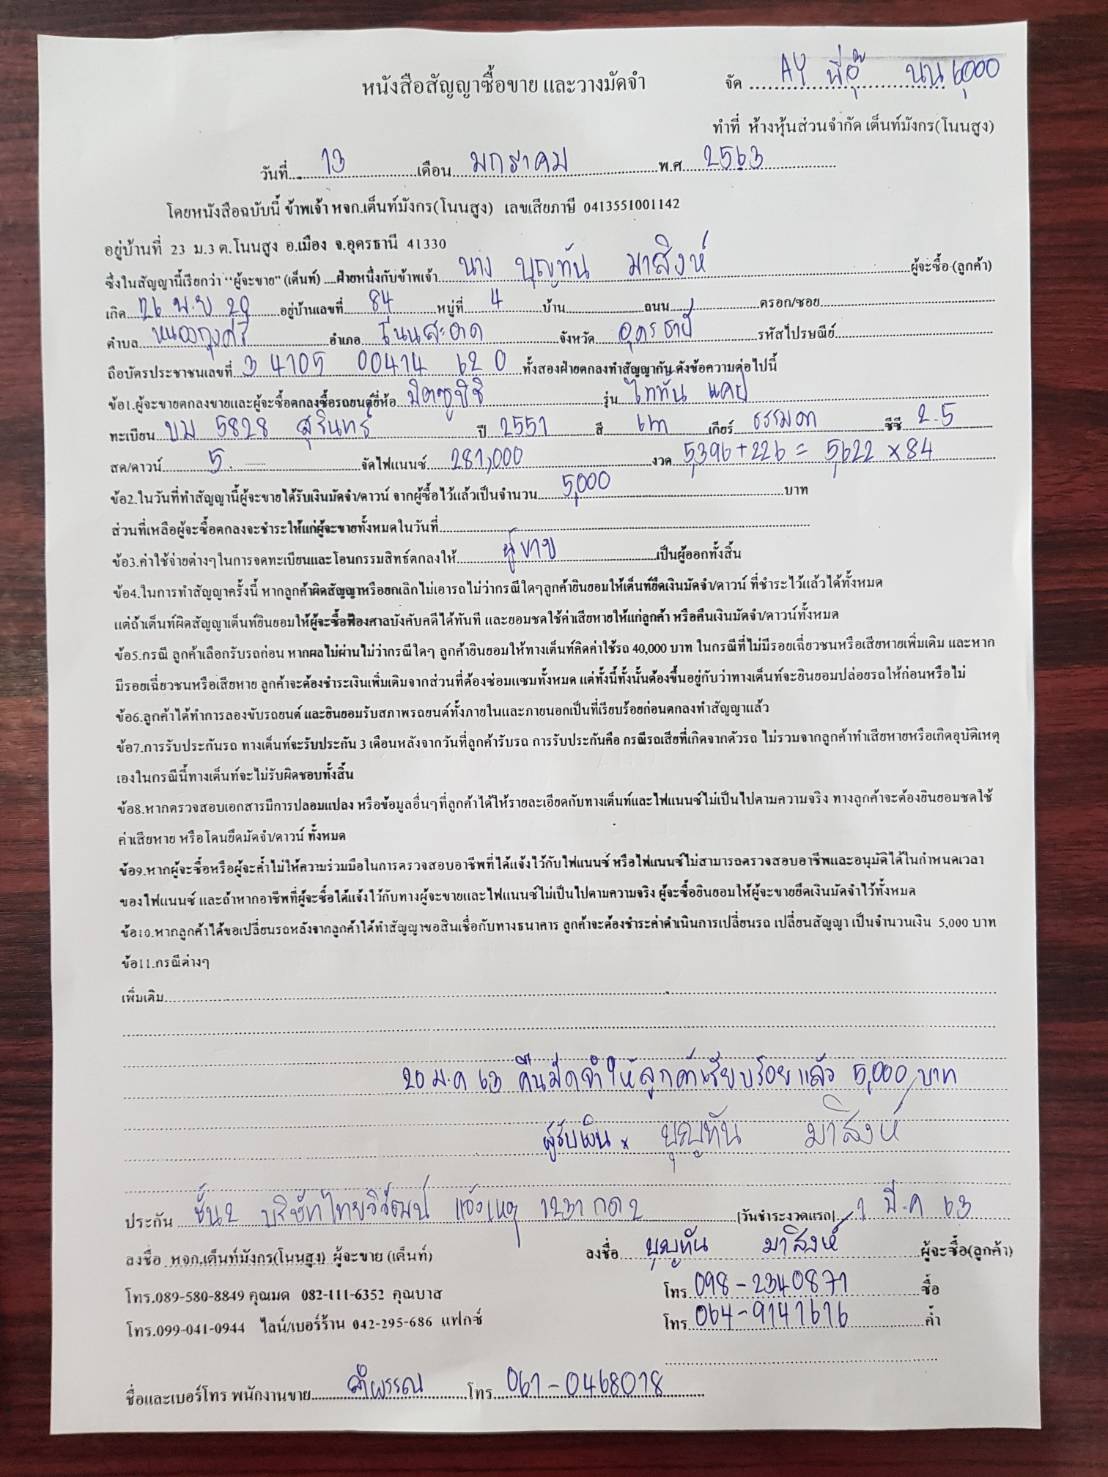 หนังสือสัญญาซื้อขาย และวางมัดจำ
จัด AY พี่อุ๊ นน 6,000
ทำที่ ห้างหุ้นส่วนจำกัด เต็นท์มังกร(โนนสูง)
วันที่ 13 เดือน มกราคม พ.ศ 2563
โดยหนังสือฉบับนี้ ข้าพเจ้า หจก.เต็นท์มังกร(โนนสูง) เลขเสียภาษี 0413551001142
อยู่บ้านที่ 23 ม.3 ต.โนนสูง อ.เมือง จ.อุดรธานี 41330
ซึ่งในสัญญานี้เรียกว่า "ผู้จะขาย" (เต็นท์) ....ฝ่ายหนึ่งกับข้าพเจ้า นาง บุญทัน มาสิงห์ ผู้จะซื้อ (ลูกค้า)
เกิด 26 พ.ย 20 อยู่บ้านเลขที่ 84 หมู่ที่ 4 บ้าน ถนน ตรอก/ซอย
ตำบล หนองกุงศรี อำเภอ โนนสะอาด จังหวัด อุดรธานี รหัสไปรษณีย์
ถือบัตรประชาชนเลขที่ 3 4105 00414 62 0 ทั้งสองฝ่ายตกลงทำสัญญากัน ดังข้อความต่อไปนี้
ข้อ1.ผู้จะขายตกลงขายและผู้จะซื้อตกลงซื้อรถยนต์ยี่ห้อ มิตซูบิชิ รุ่น ไททัน แคป
ทะเบียน บม 5828 สุรินทร์ ปี 2551 สี เทา เกียร์ ธรรมดา ซีซี 2.5
สด/ดาวน์ 5. จัดไฟแนนซ์ 281,000 งวด 5,396+226 = 5,622 x 84
ข้อ2.ในวันที่ทำสัญญานี้ผู้จะขายได้รับเงินมัดจำ/ดาวน์ จากผู้ซื้อไว้แล้วเป็นจำนวน 5,000 บาท
ส่วนที่เหลือผู้จะซื้อตกลงจะชำระให้แก่ผู้จะขายทั้งหมดในวันที่
ข้อ3.ค่าใช้จ่ายต่างๆในการจดทะเบียนและโอนกรรมสิทธ์ตกลงให้ ผู้ขาย เป็นผู้ออกทั้งสิ้น
ข้อ4.ในการทำสัญญาครั้งนี้ หากลูกค้าผิดสัญญาหรือยกเลิกไม่เอารถ ไม่ว่ากรณีใดๆลูกค้ายินยอมให้เต็นท์ยึดเงินมัดจำ/ดาวน์ ที่ชำระไว้แล้วได้ทั้งหมด
แต่ถ้าเต็นท์ผิดสัญญาเต็นท์ยินยอมให้ผู้จะซื้อฟ้องศาลบังคับคดีได้ทันที และยอมชดใช้ค่าเสียหายให้แก่ลูกค้า หรือคืนเงินมัดจำ/ดาวน์ทั้งหมด
ข้อ5.กรณี ลูกค้าเลือกรับรถก่อน หากผลไม่ผ่านไม่ว่ากรณีใดๆ ลูกค้ายินยอมให้ทางเต็นท์คิดค่าใช้รถ 40,000 บาท ในกรณีที่ไม่มีรอยเฉี่ยวชนหรือเสียหายเพิ่มเติม และหาก
มีรอยเฉี่ยวชนหรือเสียหาย ลูกค้าจะต้องชำระเงินเพิ่มเติมจากส่วนที่ต้องซ่อมแซมทั้งหมด แต่ทั้งนี้ทั้งนั้นต้องขึ้นอยู่กับว่าทางเต็นท์จะยินยอมปล่อยรถให้ก่อนหรือไม่
ข้อ6.ลูกค้าได้ทำการลองขับรถยนต์ และยินยอมรับสภาพรถยนต์ทั้งภายในและภายนอกเป็นที่เรียบร้อยก่อนตกลงทำสัญญาแล้ว
ข้อ7.การรับประกันรถ ทางเต็นท์จะรับประกัน 3 เดือนหลังจากวันที่ลูกค้ารับรถ การรับประกันคือ กรณีรถเสียที่เกิดจากตัวรถ ไม่รวมจากลูกค้าทำเสียหายหรือเกิดอุบัติเหตุ
เองในกรณีนี้ทางเต็นท์จะไม่รับผิดชอบทั้งสิ้น
ข้อ8.หากตรวจสอบเอกสารมีการปลอมแปลง หรือข้อมูลอื่นๆที่ลูกค้าได้ให้รายละเอียดกับทางเต็นท์และไฟแนนซ์ไม่เป็นไปตามความจริง ทางลูกค้าจะต้องยินยอมชดใช้
ค่าเสียหาย หรือโดนยึดมัดจำ/ดาวน์ ทั้งหมด
ข้อ9.หากผู้จะซื้อหรือผู้จะค้ำไม่ให้ความร่วมมือในการตรวจสอบอาชีพที่ได้แจ้งไว้กับไฟแนนซ์ หรือไฟแนนซ์ไม่สามารถตรวจสอบอาชีพและอนุมัติได้ในกำหนดเวลา
ของไฟแนนซ์ และถ้าหากอาชีพที่ผู้จะซื้อได้แจ้งไว้กับทางผู้จะขายและไฟแนนซ์ไม่เป็นไปตามความจริง ผู้จะซื้อยินยอมให้ผู้จะขายยึดเงินมัดจำไว้ทั้งหมด
ข้อ10.หากลูกค้าได้ขอเปลี่ยนรถหลังจากลูกค้าได้ทำสัญญาขอสินเชื่อกับทางธนาคาร ลูกค้าจะต้องชำระค่าดำเนินการเปลี่ยนรถ เปลี่ยนสัญญา เป็นจำนวนเงิน 5,000 บาท
ข้อ11.กรณีต่างๆ
เพิ่มเติม
20 ม.ค 63 คืนมัดจำให้ลูกค้าเรียบร้อยแล้ว 5,000 บาท
ผู้รับเงิน x บุญทัน มาสิงห์
ประกัน ชั้น2 บริษัทไทยวิวัฒน์ แจ้งเหตุ 1231 กด 2 (วันชำระงวดแรก) 1 มี.ค 63
ลงชื่อ หจก.เต็นท์มังกร(โนนสูง) ผู้จะขาย (เต็นท์) ลงชื่อ บุญทัน มาสิงห์ ผู้จะซื้อ(ลูกค้า)
โทร.089-580-8849 คุณมด 082-111-6352 คุณบาส โทร 098-2340871 ซื้อ
โทร.099-041-0944 ไลน์/เบอร์ร้าน 042-295-686 แฟกซ์ โทร 064-9141616 ค้ำ
ชื่อและเบอร์โทร พนักงานขาย คำพรรณ โทร 061-0468018